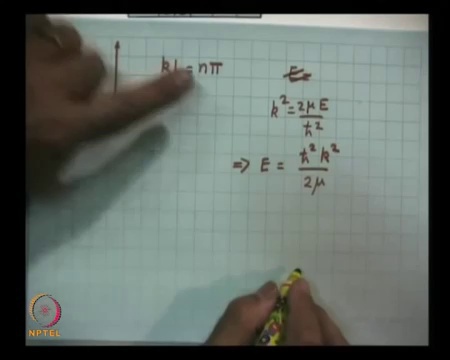 kL = nπ
E =
k² = 2μE / ħ²
⇒ E = ħ²k² / 2μ
NPTEL